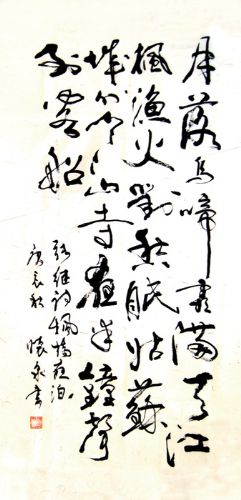 月落烏啼霜滿天江
楓漁火對愁眠姑蘇
城外寒山寺夜半鐘聲
到客船
張繼詩楓橋夜泊
庚辰秋 懷泉書